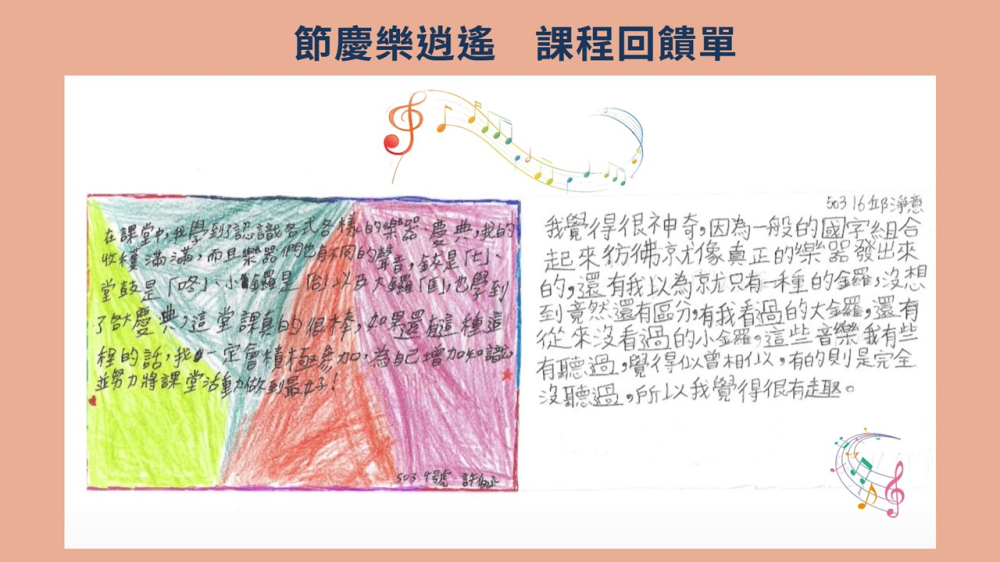 節慶樂逍遙 課程回饋單
在課堂中,我學到了認識各式各樣的樂器、慶典,我的
收穫滿滿,而且樂器們也有不同的聲音,鈸是「七」、
堂鼓是「咚」、小鑼是「台」以及大鑼「匡」,也學到
了各式慶典,這堂課真的很棒,如果還有這種這
程的話,我一定會積極參加,為自己增加知識,
並努力將課堂活動做到最好!
503 4號 許
503 16 邱淨意
我覺得很神奇,因為一般的國字組合
起來彷彿就像真正的樂器發出來
的,還有我以為就只有一種的金鑼,沒想
到竟然還有區分,有我看過的大金鑼,還有
從來沒看過的小金鑼。這些音樂我有些
有聽過,覺得似曾相似,有的則是完全
沒聽過,所以我覺得很有趣。